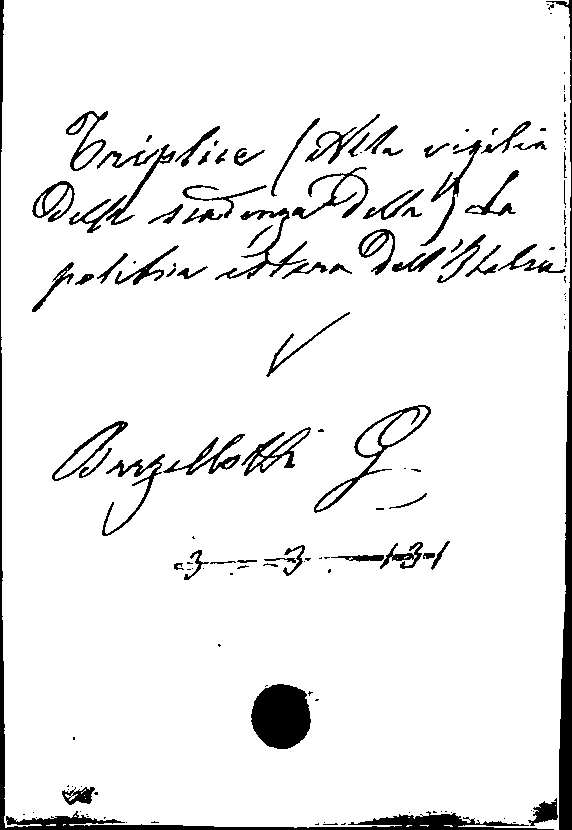 Triplice (Alla vigilia
della scadenza della) La
politica estera dell'Italia
Barzellotti G
3 3 3